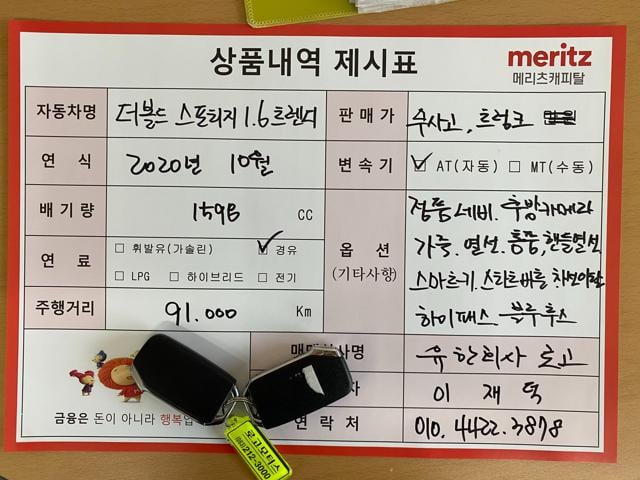 상품내역 제시표
meritz
메리츠캐피탈
자동차명 더볼드 스포티지 1.6 트렌디
판매가 무사고, 트렁크
연식 2020년 10월
변속기 ☑ AT(자동) ☐ MT(수동)
배기량 1598 CC
옵션
(기타사항)
정품네비. 후방카메라
가죽. 열선. 통풍, 핸들열선
스마트키. 스타트버튼. 차선이탈
하이패스 블루투스
연료 ☐ 휘발유(가솔린) ☑ 경유
☐ LPG ☐ 하이브리드 ☐ 전기
주행거리 91.000 Km
매매 사명 유한회사 로고
자 이재덕
연락처 010.4422.3878
금융은 돈이 아니라 행복입
로고모터스
212-3000